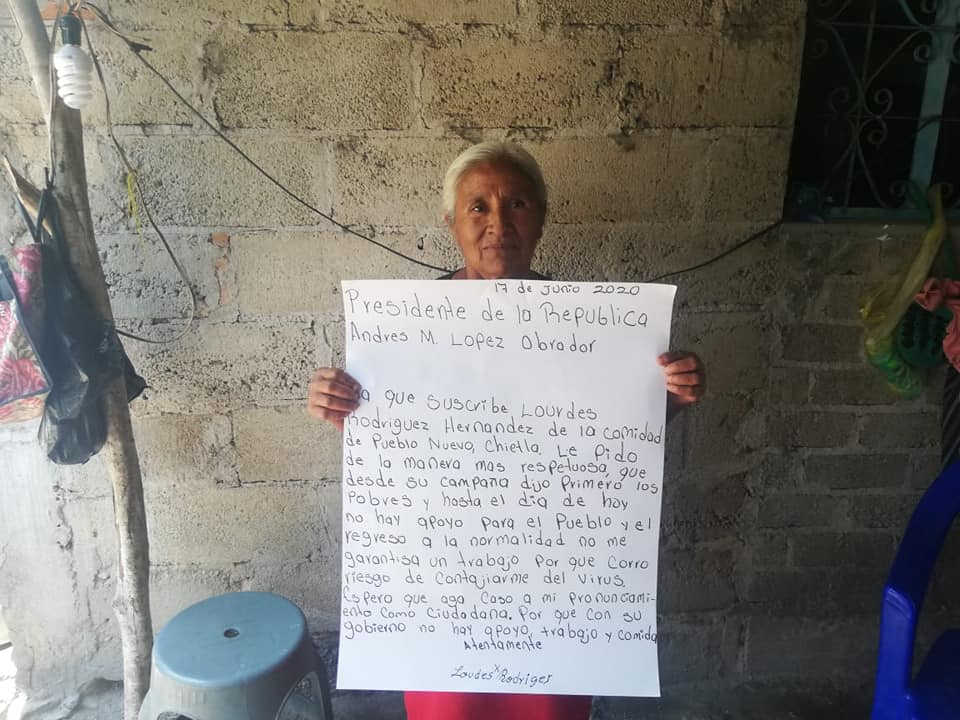 17 de Junio 2020
Presidente de la Republica
Andres M. Lopez Obrador
La que suscribe Lourdes
Rodriguez Hernandez de la comidad
de Pueblo Nuevo, Chietla. Le Pido
de la manera mas respetuosa, que
desde su campaña dijo Primero los
Pobres y hasta el dia de hoy
no hay apoyo para el Pueblo y el
regreso a la normalidad no me
garantisa un trabajo Por que corro
riesgo de contajiarme del virus.
Espero que aga caso a mi pronunciami-
ento como ciudadana. Por que con su
gobierno no hay apoyo, trabajo y comida
Atentamente
Loudes Rodriger